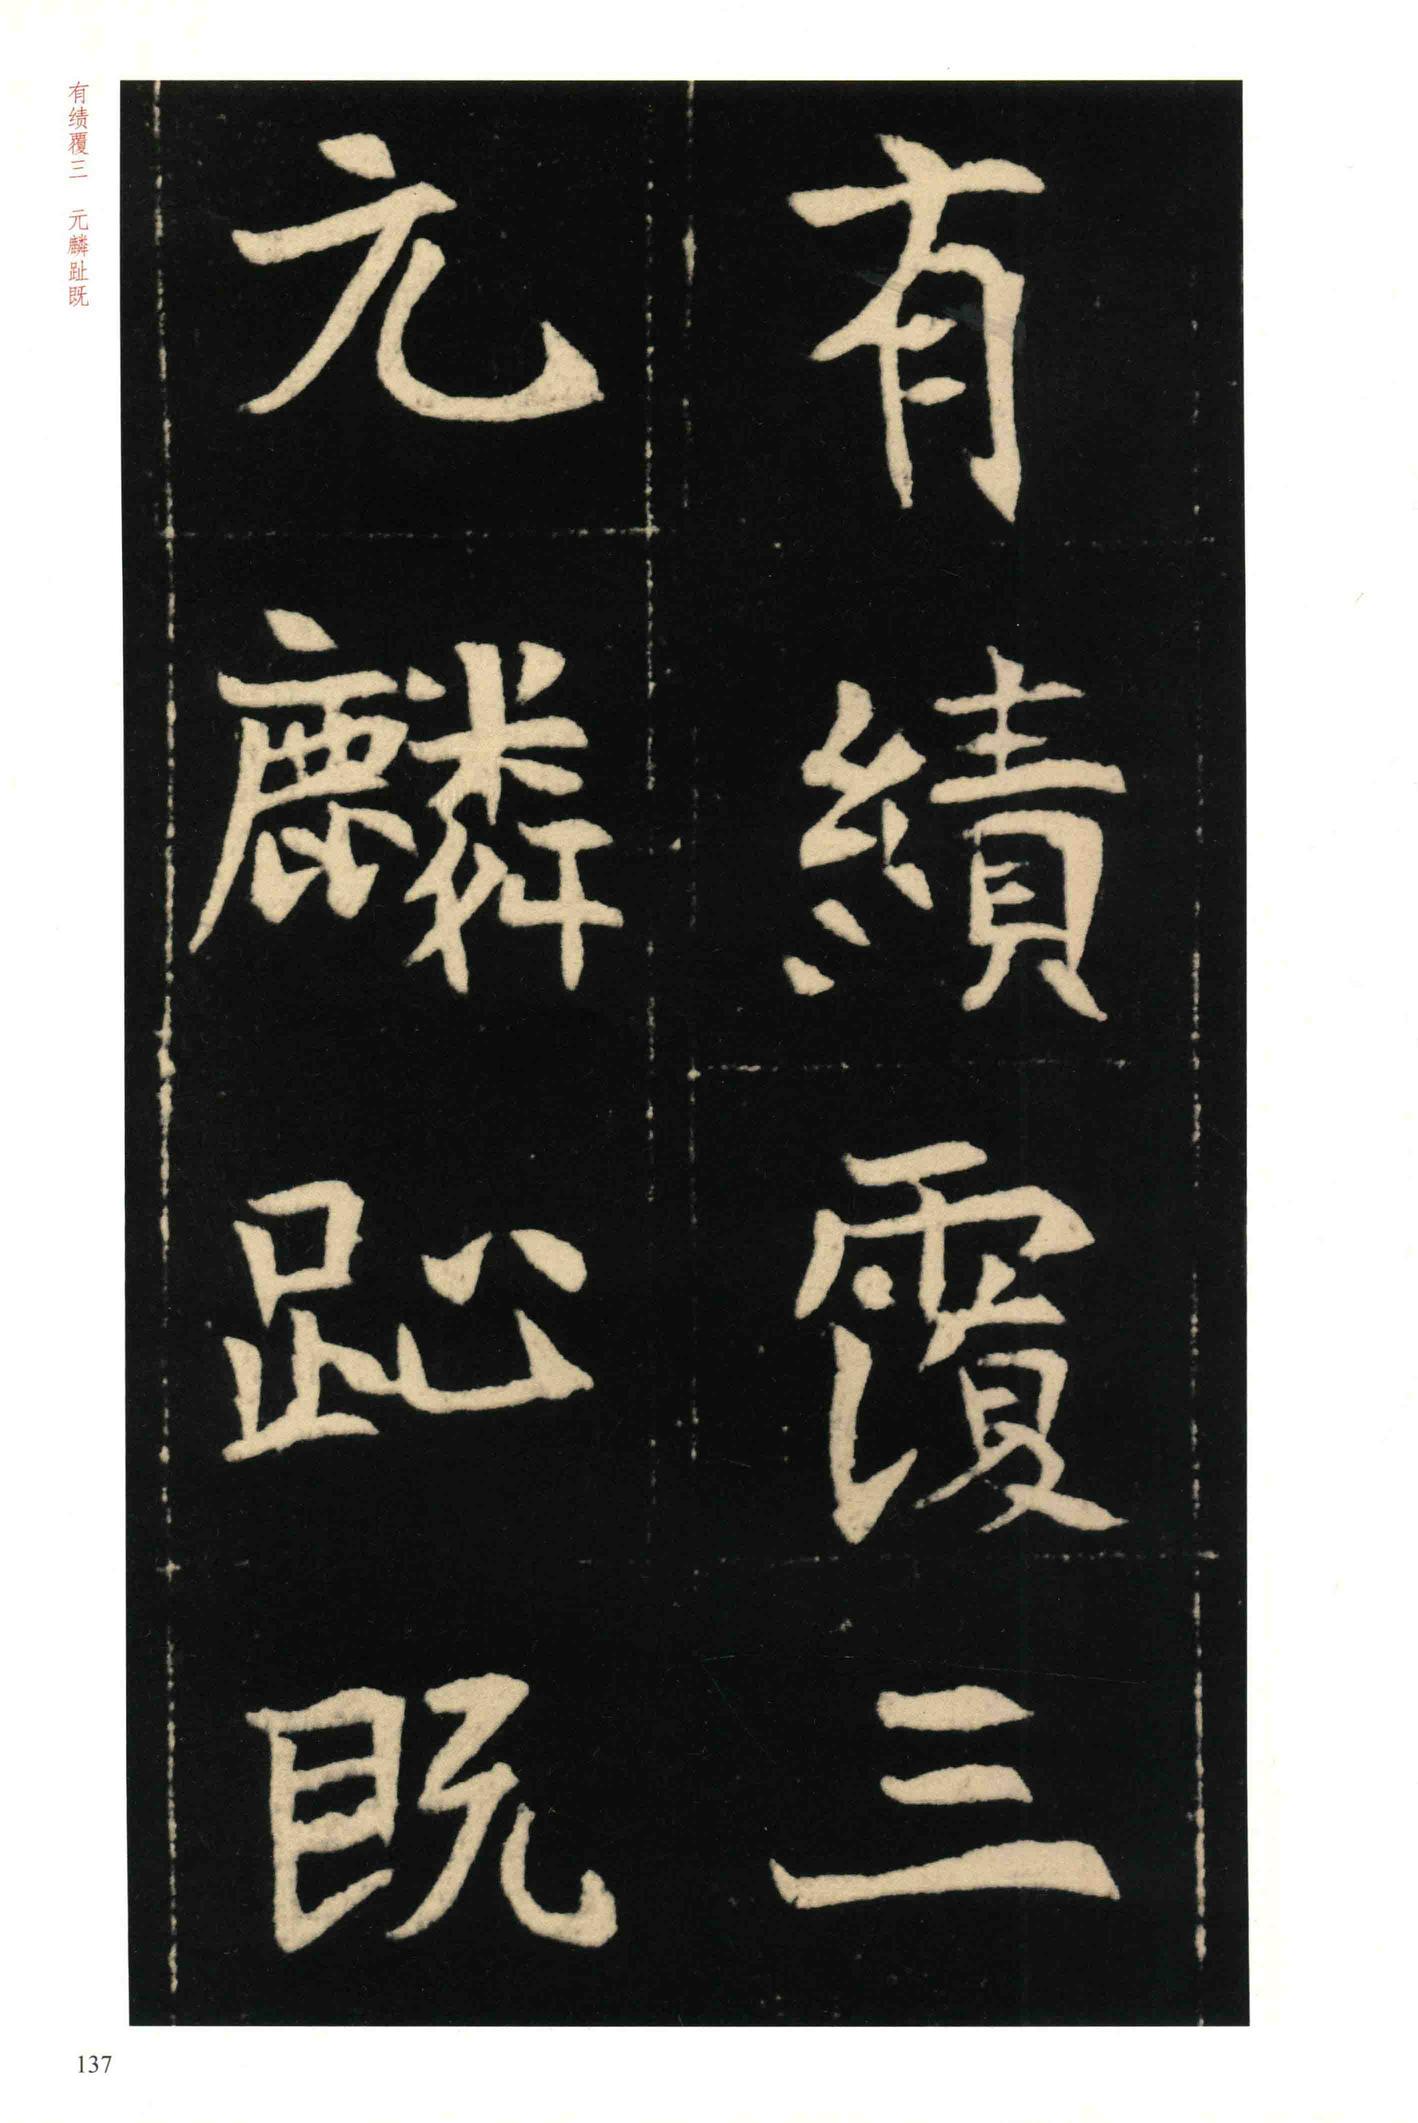 有績覆三
元麟趾既
有绩覆三 元麟趾既
137